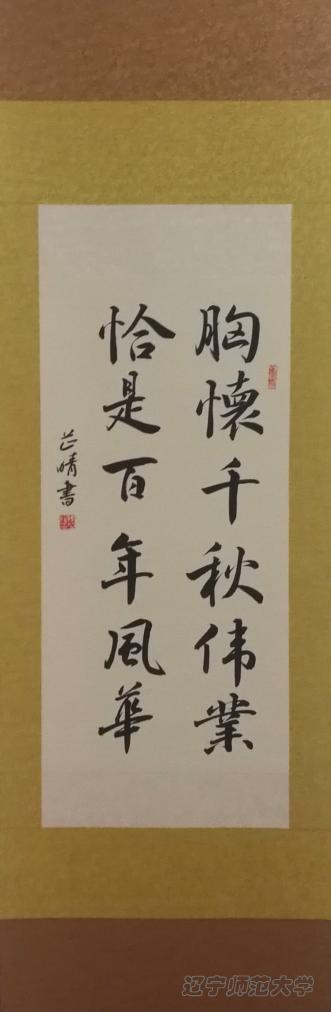 胸懷千秋伟業
恰是百年風華
芷晴書
辽宁师范大学